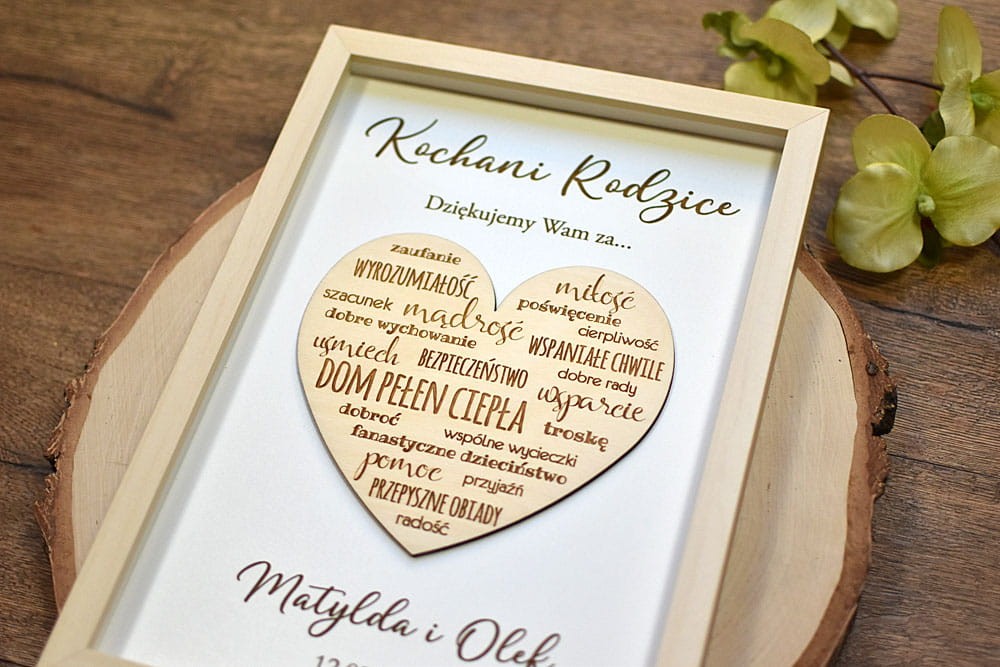 Kochani Rodzice
Dziękujemy Wam za...
zaufanie
WYROZUMIAŁOŚĆ
szacunek mądrość
dobre wychowanie
uśmiech BEZPIECZEŃSTWO
miłość
poświęcenie
cierpliwość
WSPANIAŁE CHWILE
dobre rady
wsparcie
DOM PEŁEN CIEPŁA
troskę
dobroć
wspólne wycieczki
fanastyczne dzieciństwo
pomoc przyjaźń
PRZEPYSZNE OBIADY
radość
Matylda i Olek